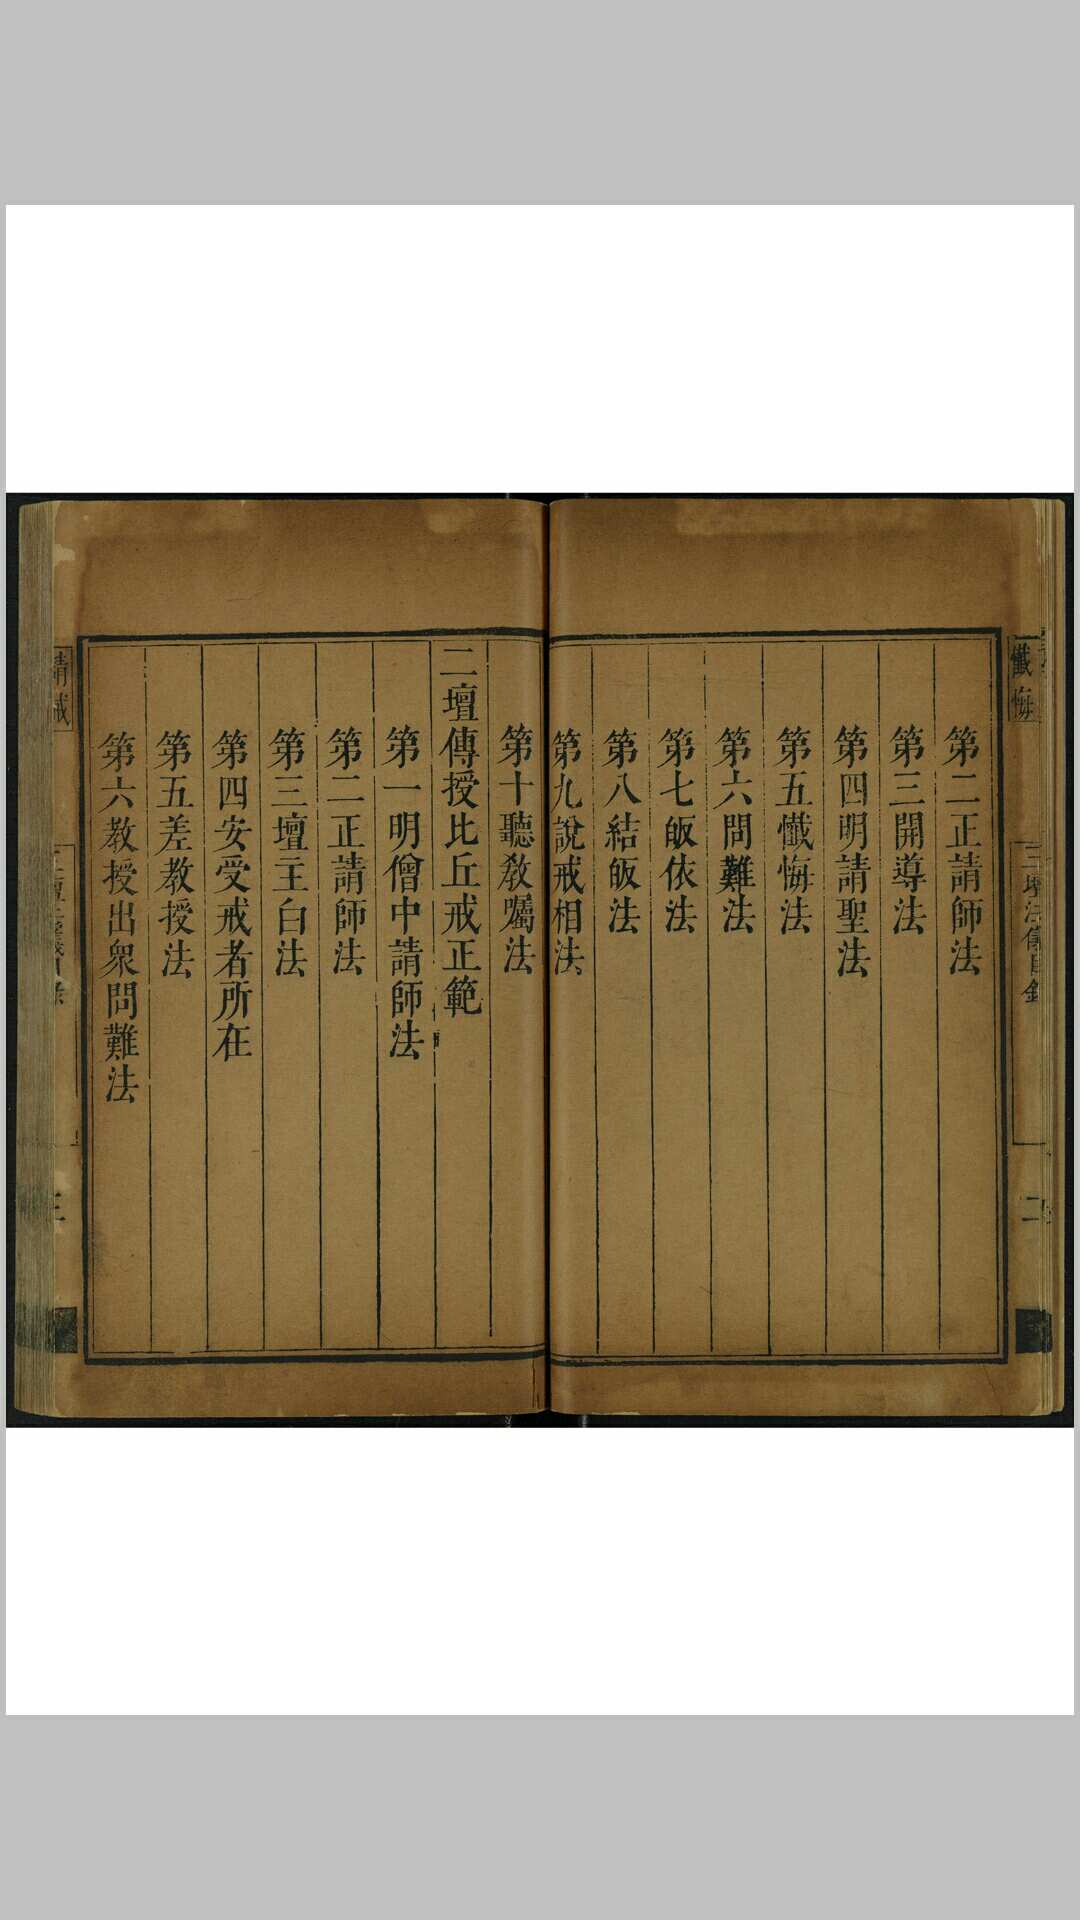 懺悔
三壇法儀目錄
二
第二正請師法
第三開導法
第四明請聖法
第五懺悔法
第六問難法
第七皈依法
第八結皈法
第九說戒相法
第十聽教囑法
二壇傳授比丘戒正範
第一明僧中請師法
第二正請師法
第三壇主白法
第四安受戒者所在
第五差教授法
第六教授出衆問難法
請戒
三